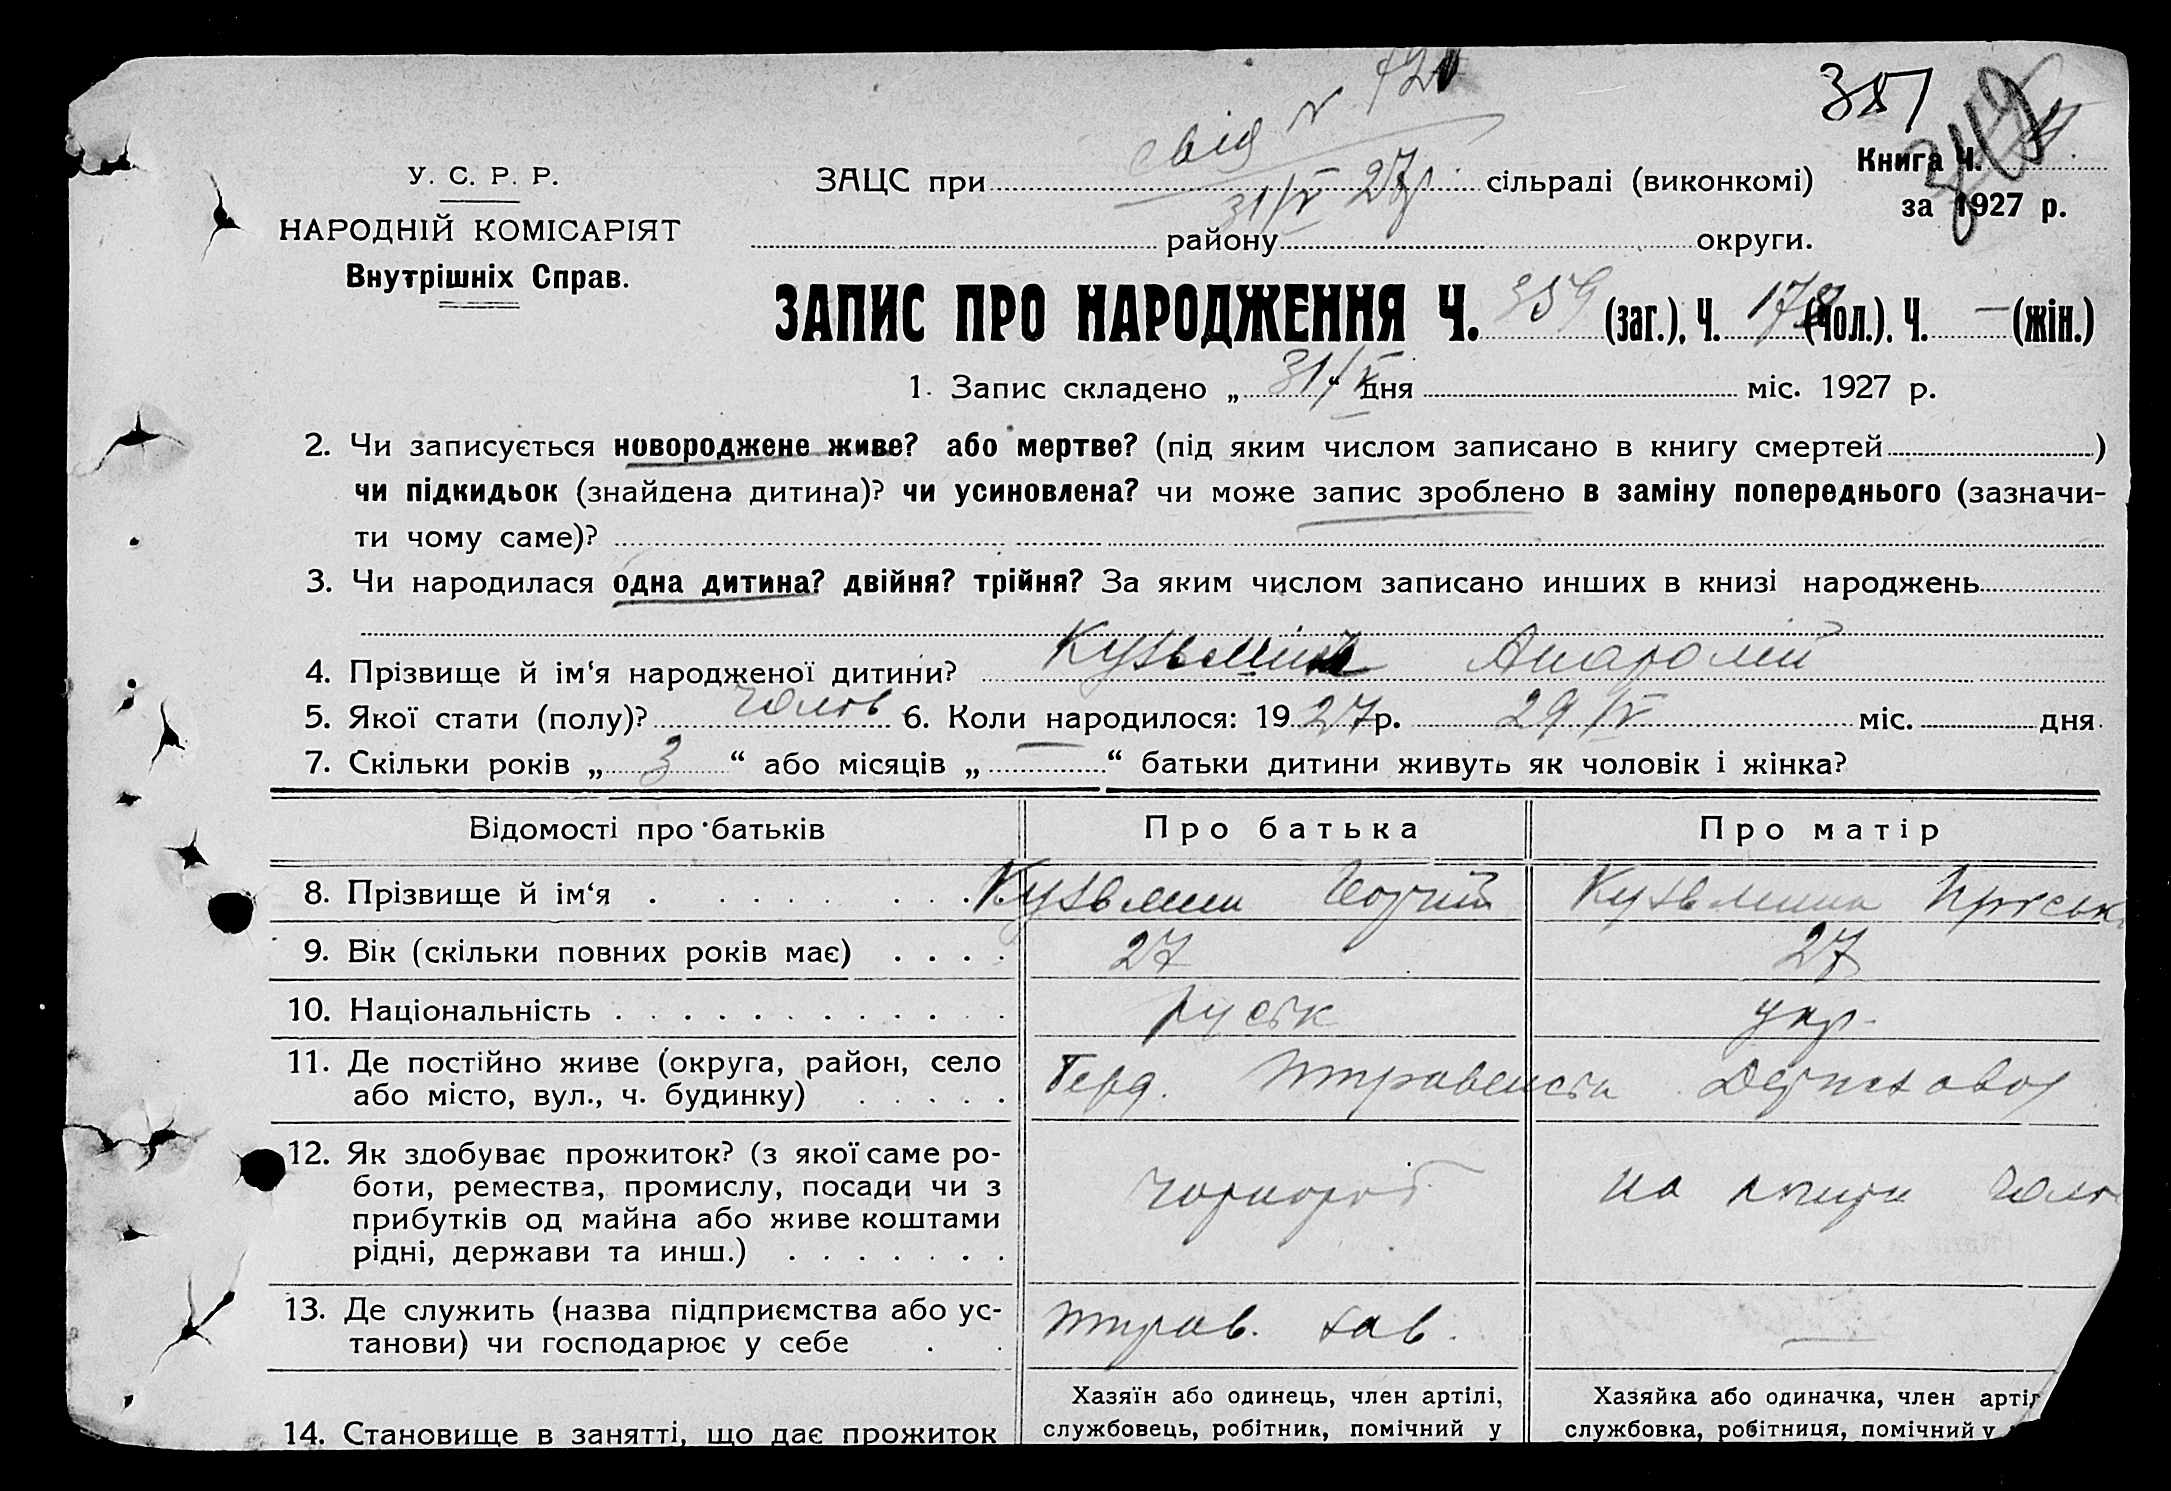 свід N 720
357
У. С. Р. Р.
НАРОДНІЙ КОМІСАРІЯТ
Внутрішніх Справ.
ЗАЦС при 31/V 27р. сільраді (виконкомі)
району округи.
Книга Ч.
за 1927 р.
ЗАПИС ПРО НАРОДЖЕННЯ Ч. 359 (заг.), Ч. 178 (чол.). Ч. — (жін.)
1. Запис складено „ 31/V “ дня міс. 1927 р.
2. Чи записується новороджене живе? або мертве? (під яким числом записано в книгу смертей )
чи підкидьок (знайдена дитина)? чи усиновлена? чи може запис зроблено в заміну попереднього (зазначи-
ти чому саме)?
3. Чи народилася одна дитина? двійня? трійня? За яким числом записано инших в книзі народжень
4. Прізвище й ім‘я народженої дитини? Кузьмин
5. Якої стати (полу)? чолов 6. Коли народилося: 1927р. 29/V міс. дня
7. Скільки років „ 3 “ або місяців „ — “ батьки дитини живуть як чоловік і жінка?
Відомості про батьків Про батька Про матір
8. Прізвище й ім‘я Кузьмин Кузьмина
9. Вік (скільки повних років має) 27 27
10. Національність руськ укр.
11. Де постійно живе (округа, район, село
або місто, вул., ч. будинку)
12. Як здобуває прожиток? (з якої саме ро-
боти, ремества, промислу, посади чи з
прибутків од майна або живе коштами
рідні, держави та инш.) чорнороб.
13. Де служить (назва підприємства або ус-
танови) чи господарює у себе —
14. Становище в занятті, що дає прожиток
Хазяїн або одинець, член артілі,
службовець, робітник, помічний у
Хазяйка або одиначка, член артіл
службовка, робітниця, помічний у